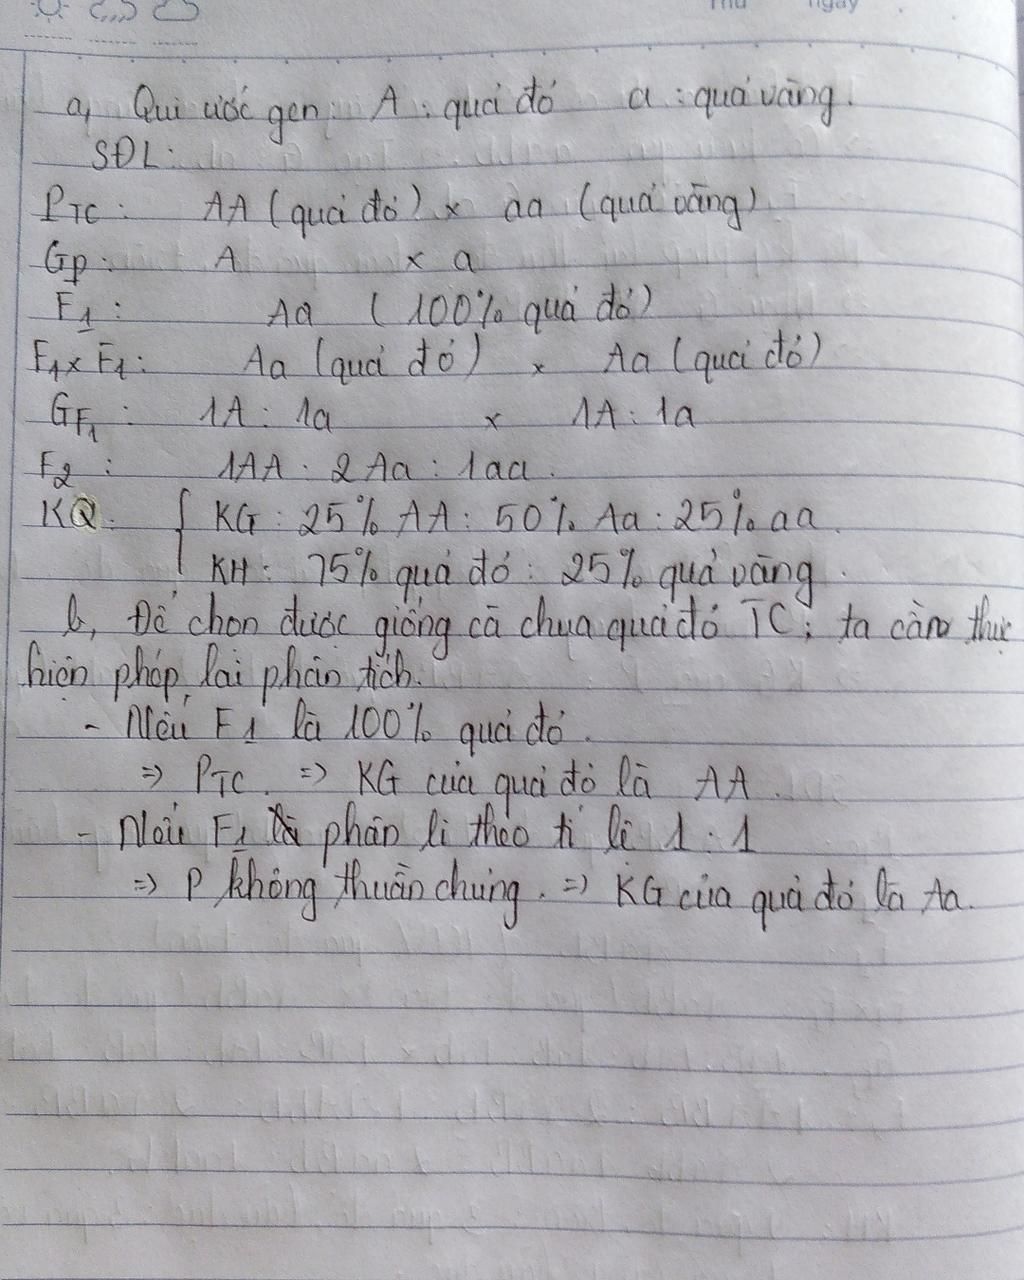 Thứ ngày
a, Qui ước gen: A: quả đỏ a: quả vàng.
SĐL:
PTC: AA (quả đỏ) x aa (quả vàng)
Gp: A x a
F1: Aa (100% quả đỏ)
F1 x F1: Aa (quả đỏ) x Aa (quả đỏ)
GF1: 1A : 1a x 1A : 1a
F2: 1AA : 2Aa : 1aa.
KQ: { KG: 25% AA : 50% Aa : 25% aa.
KH: 75% quả đỏ : 25% quả vàng.
b, Để chọn được giống cà chua quả đỏ TC; ta cần thực
hiện phép lai phân tích.
- Nếu F1 là 100% quả đỏ.
=> PTC. => KG của quả đỏ là AA.
- Nếu F1 phân li theo tỉ lệ 1 : 1
=> P không thuần chủng. => KG của quả đỏ là Aa.